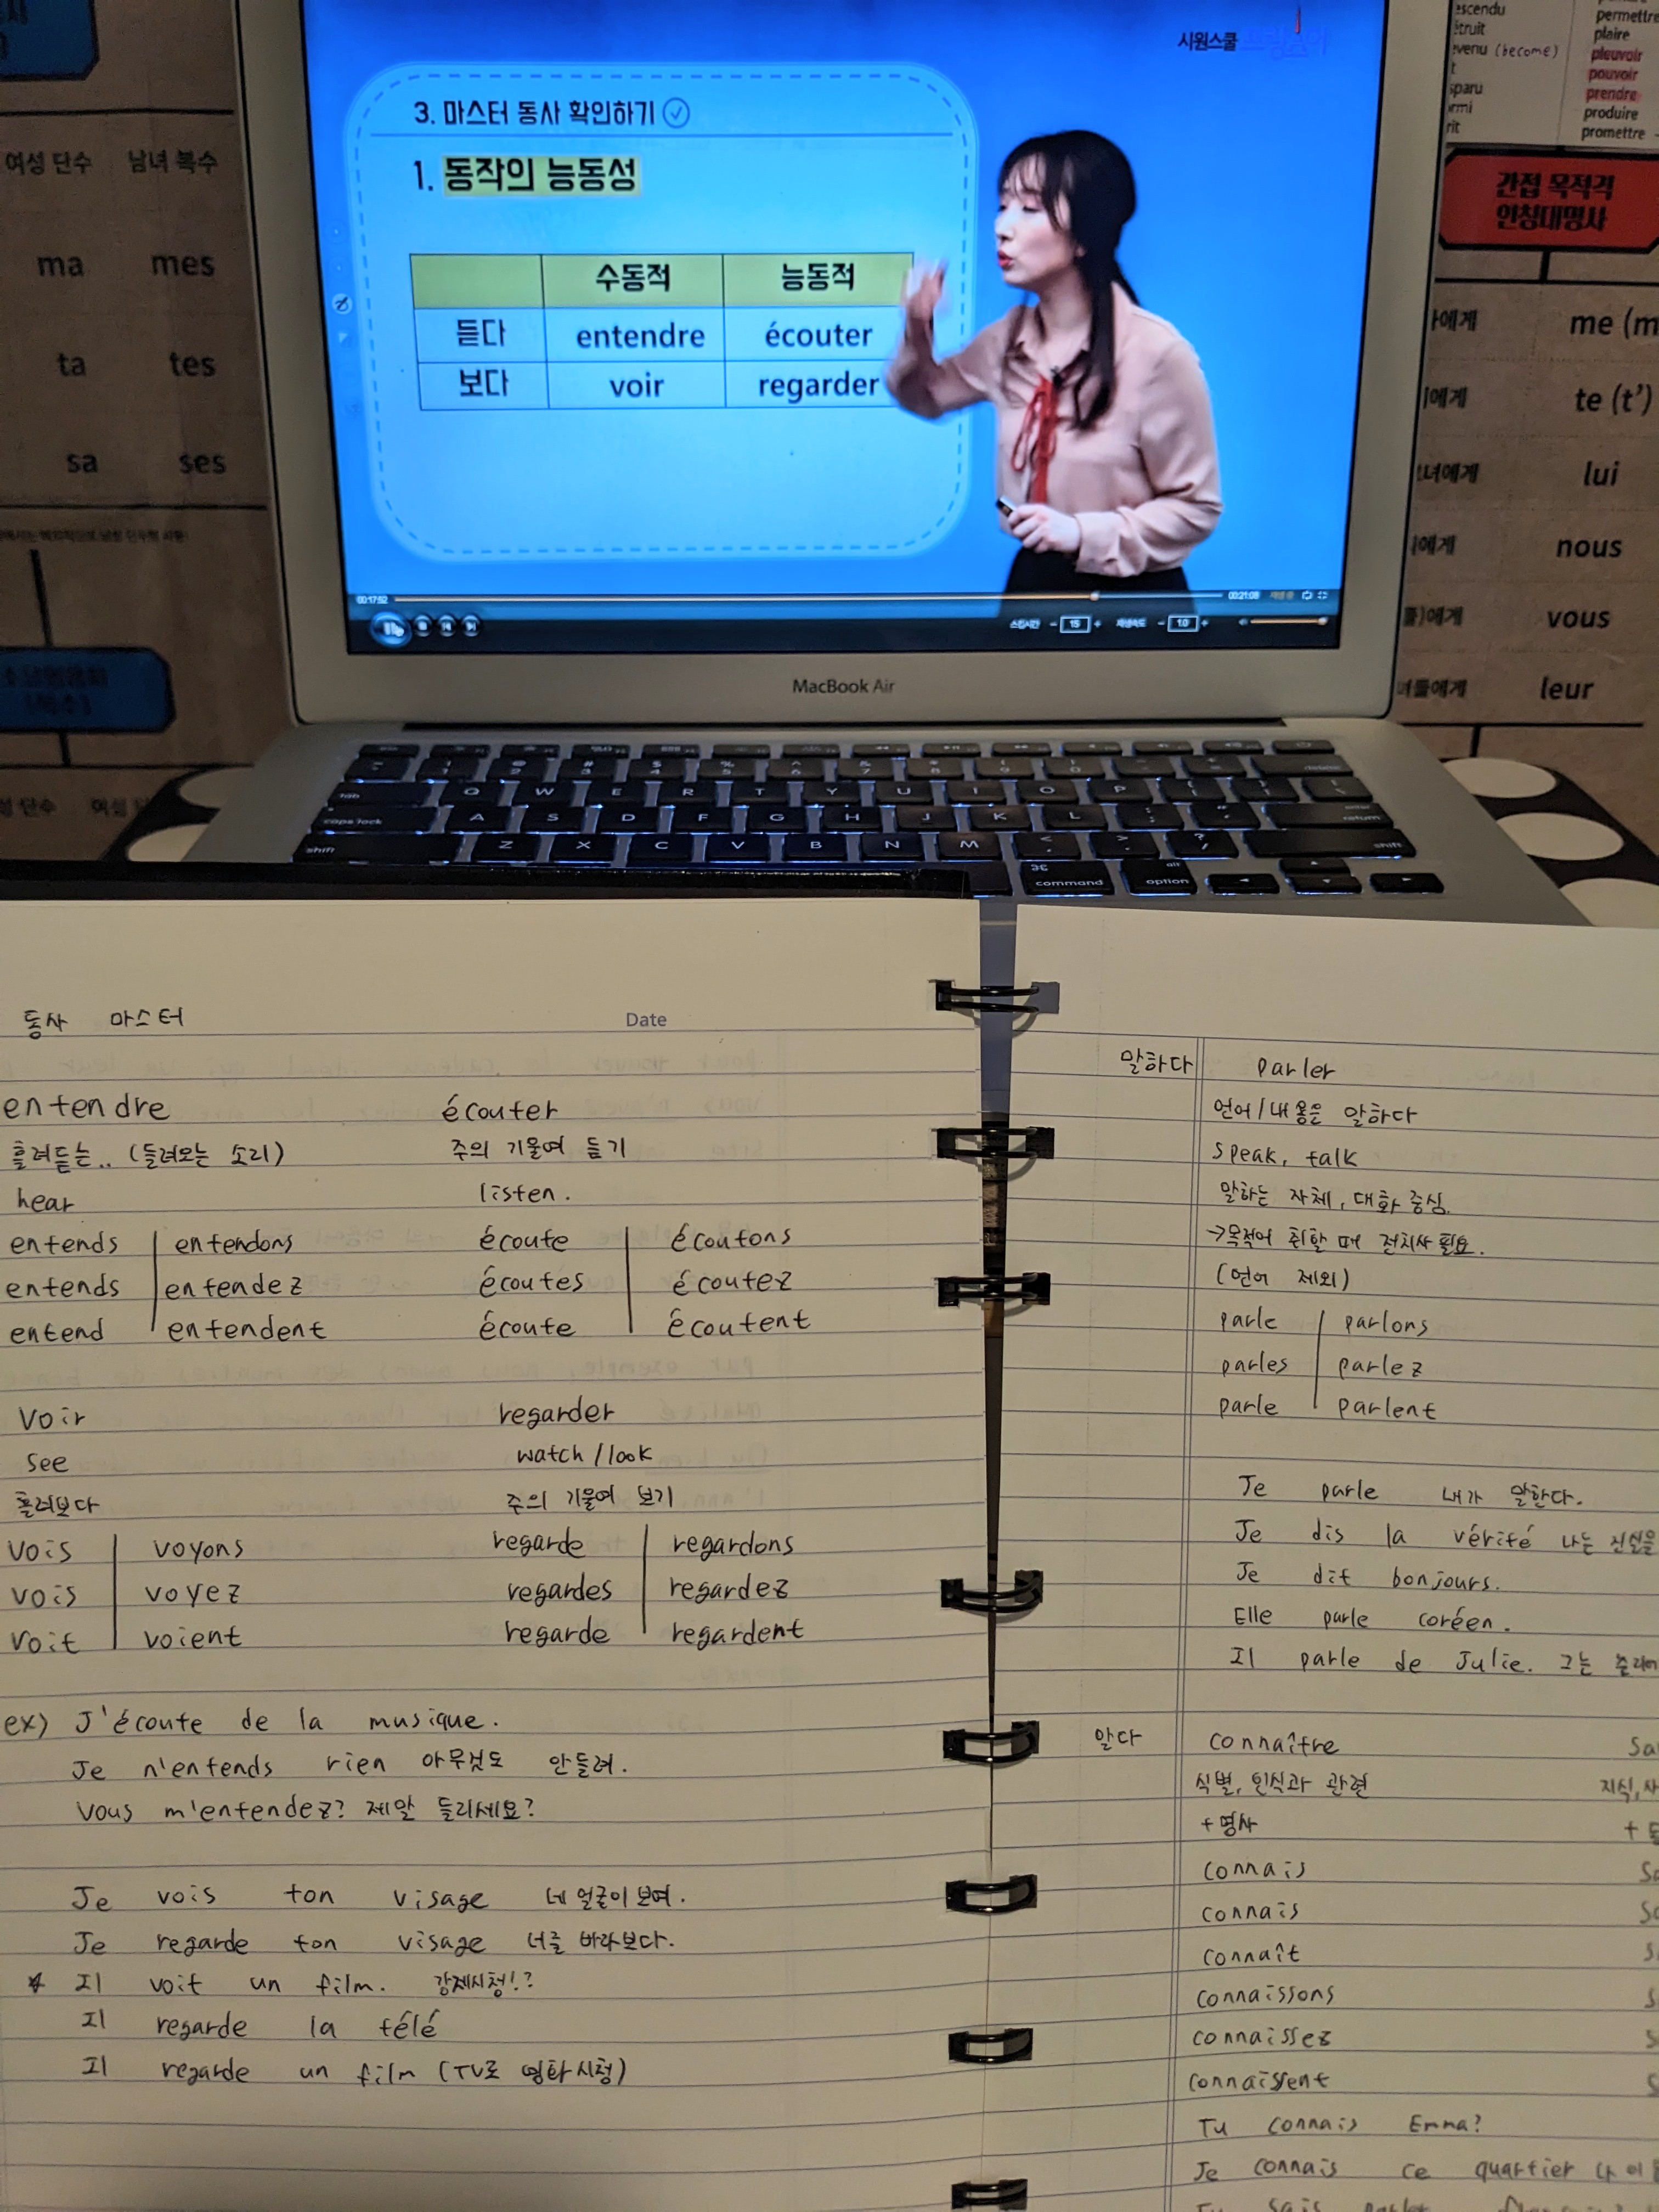 시원스쿨
3. 마스터 동사 확인하기
1. 동작의 능동성
수동적 능동적
듣다 entendre écouter
보다 voir regarder
00:17:52
00:21:08
15
1.0
MacBook Air
여성 단수 남녀 복수
ma mes
ta tes
sa ses
escendu
étruit
evenu (become)
permettre
plaire
pleuvoir
pouvoir
prendre
produire
promettre
간접 목적격
인칭대명사
에게 me (m
에게 te (t')
녀에게 lui
에게 nous
에게 vous
들에게 leur
Q W E R T Y U I O P
caps lock A S D F G H J K L return
shift Z X C V B N M shift
command option
동사 마스터 Date
entendre écouter
흘려듣는.. (들려오는 소리) 주의 기울여 듣기
hear listen.
entends entendons écoute écoutons
entends entendez écoutes écoutez
entend entendent écoute écoutent
voir regarder
see watch/look
흘려보다 주의 기울여 보기
vois voyons regarde regardons
vois voyez regardes regardez
voit voient regarde regardent
ex) J'écoute de la musique.
Je n'entends rien 아무것도 안들려.
Vous m'entendez? 제말 들리세요?
Je vois ton visage 네 얼굴이 보여.
Je regarde ton visage 너를 바라보다.
Il voit un film. 강제시청!?
Il regarde la télé
Il regarde un film (TV로 영화시청)
말하다 parler
언어/내용은 말하다
speak, talk
말하는 자체, 대화 중심.
→목적어 취할 때 전치사 필요.
(언어 제외)
parle parlons
parles parlez
parle parlent
Je parle 내가 말한다.
Je dis la vérité 나는 진실을
Je dit bonjours.
Elle parle coréen.
Il parle de Julie. 그는
알다 connaître
식별, 인식과 관련 지식,
+명사 +
connais
connais
connaît
connaissons
connaissez
connaissent
Tu connais Emma?
Je connais ce quartier 나 이